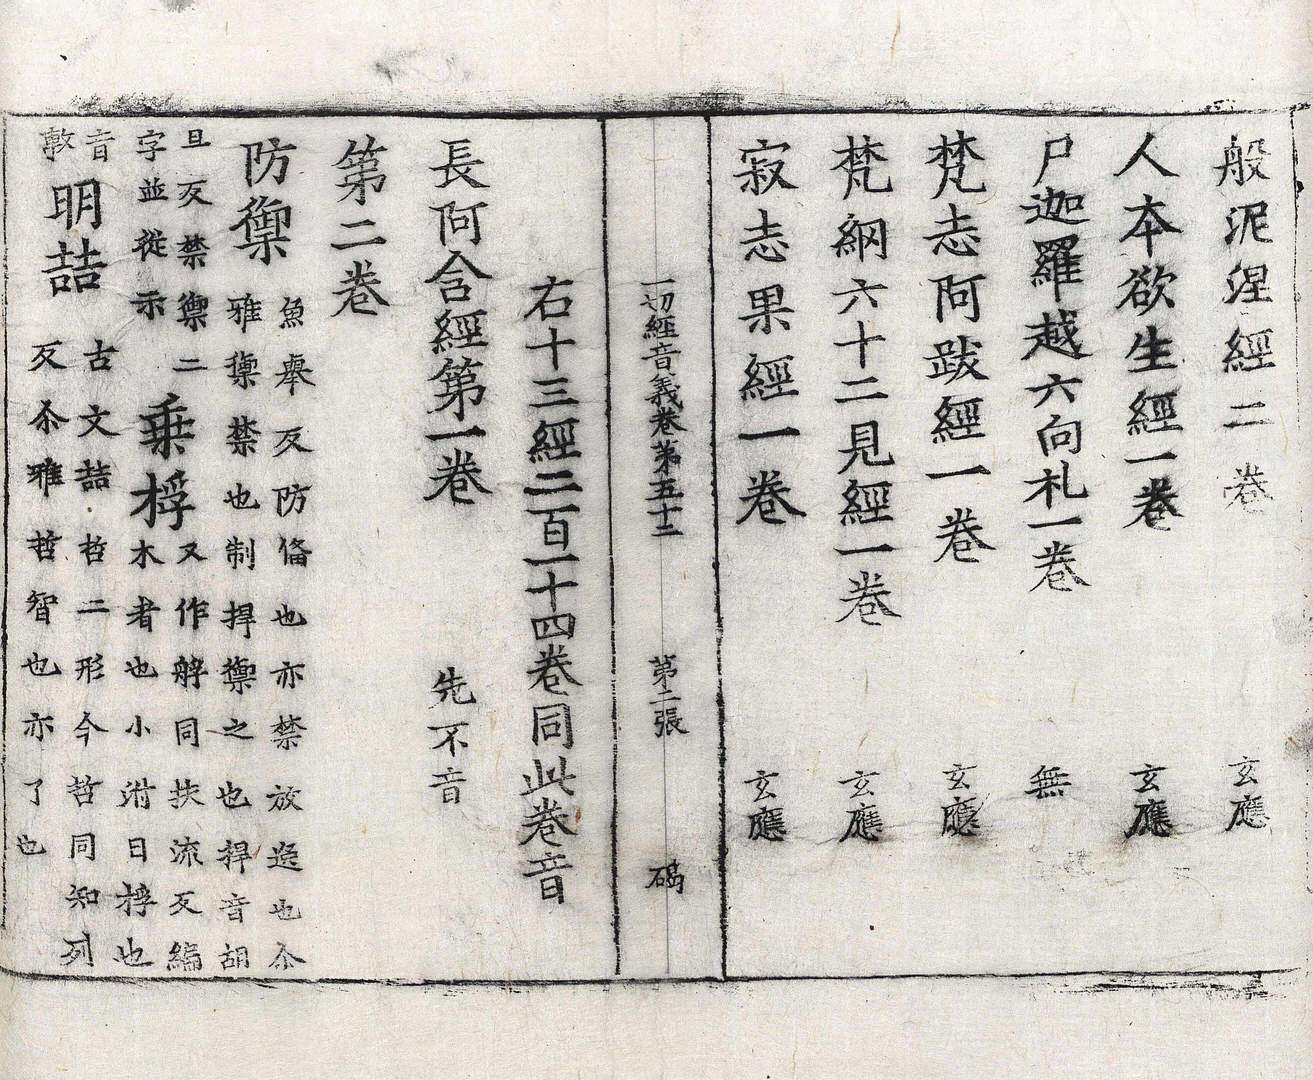 般泥洹經二卷 玄應
人本欲生經一卷 玄應
尸迦羅越六向札一卷 無
梵志阿颰經一卷 玄應
梵綱六十二見經一卷 玄應
寂志果經一卷 玄應
一切經音義卷第五十二 第二張 碣
右十三經二百一十四卷同此卷音
長阿含經第一卷 先不音
第二卷
防禦
魚舉反防俻也亦禁放逸也尒
雅禦禁也制捍禦之也捍音胡
旦反禁禦二
字並從示
乗桴
又作艀同扶流反編
木者也小泭曰桴也
音
敷
明喆
古文喆哲二形今哲同知列
反尒雅哲智也亦了也